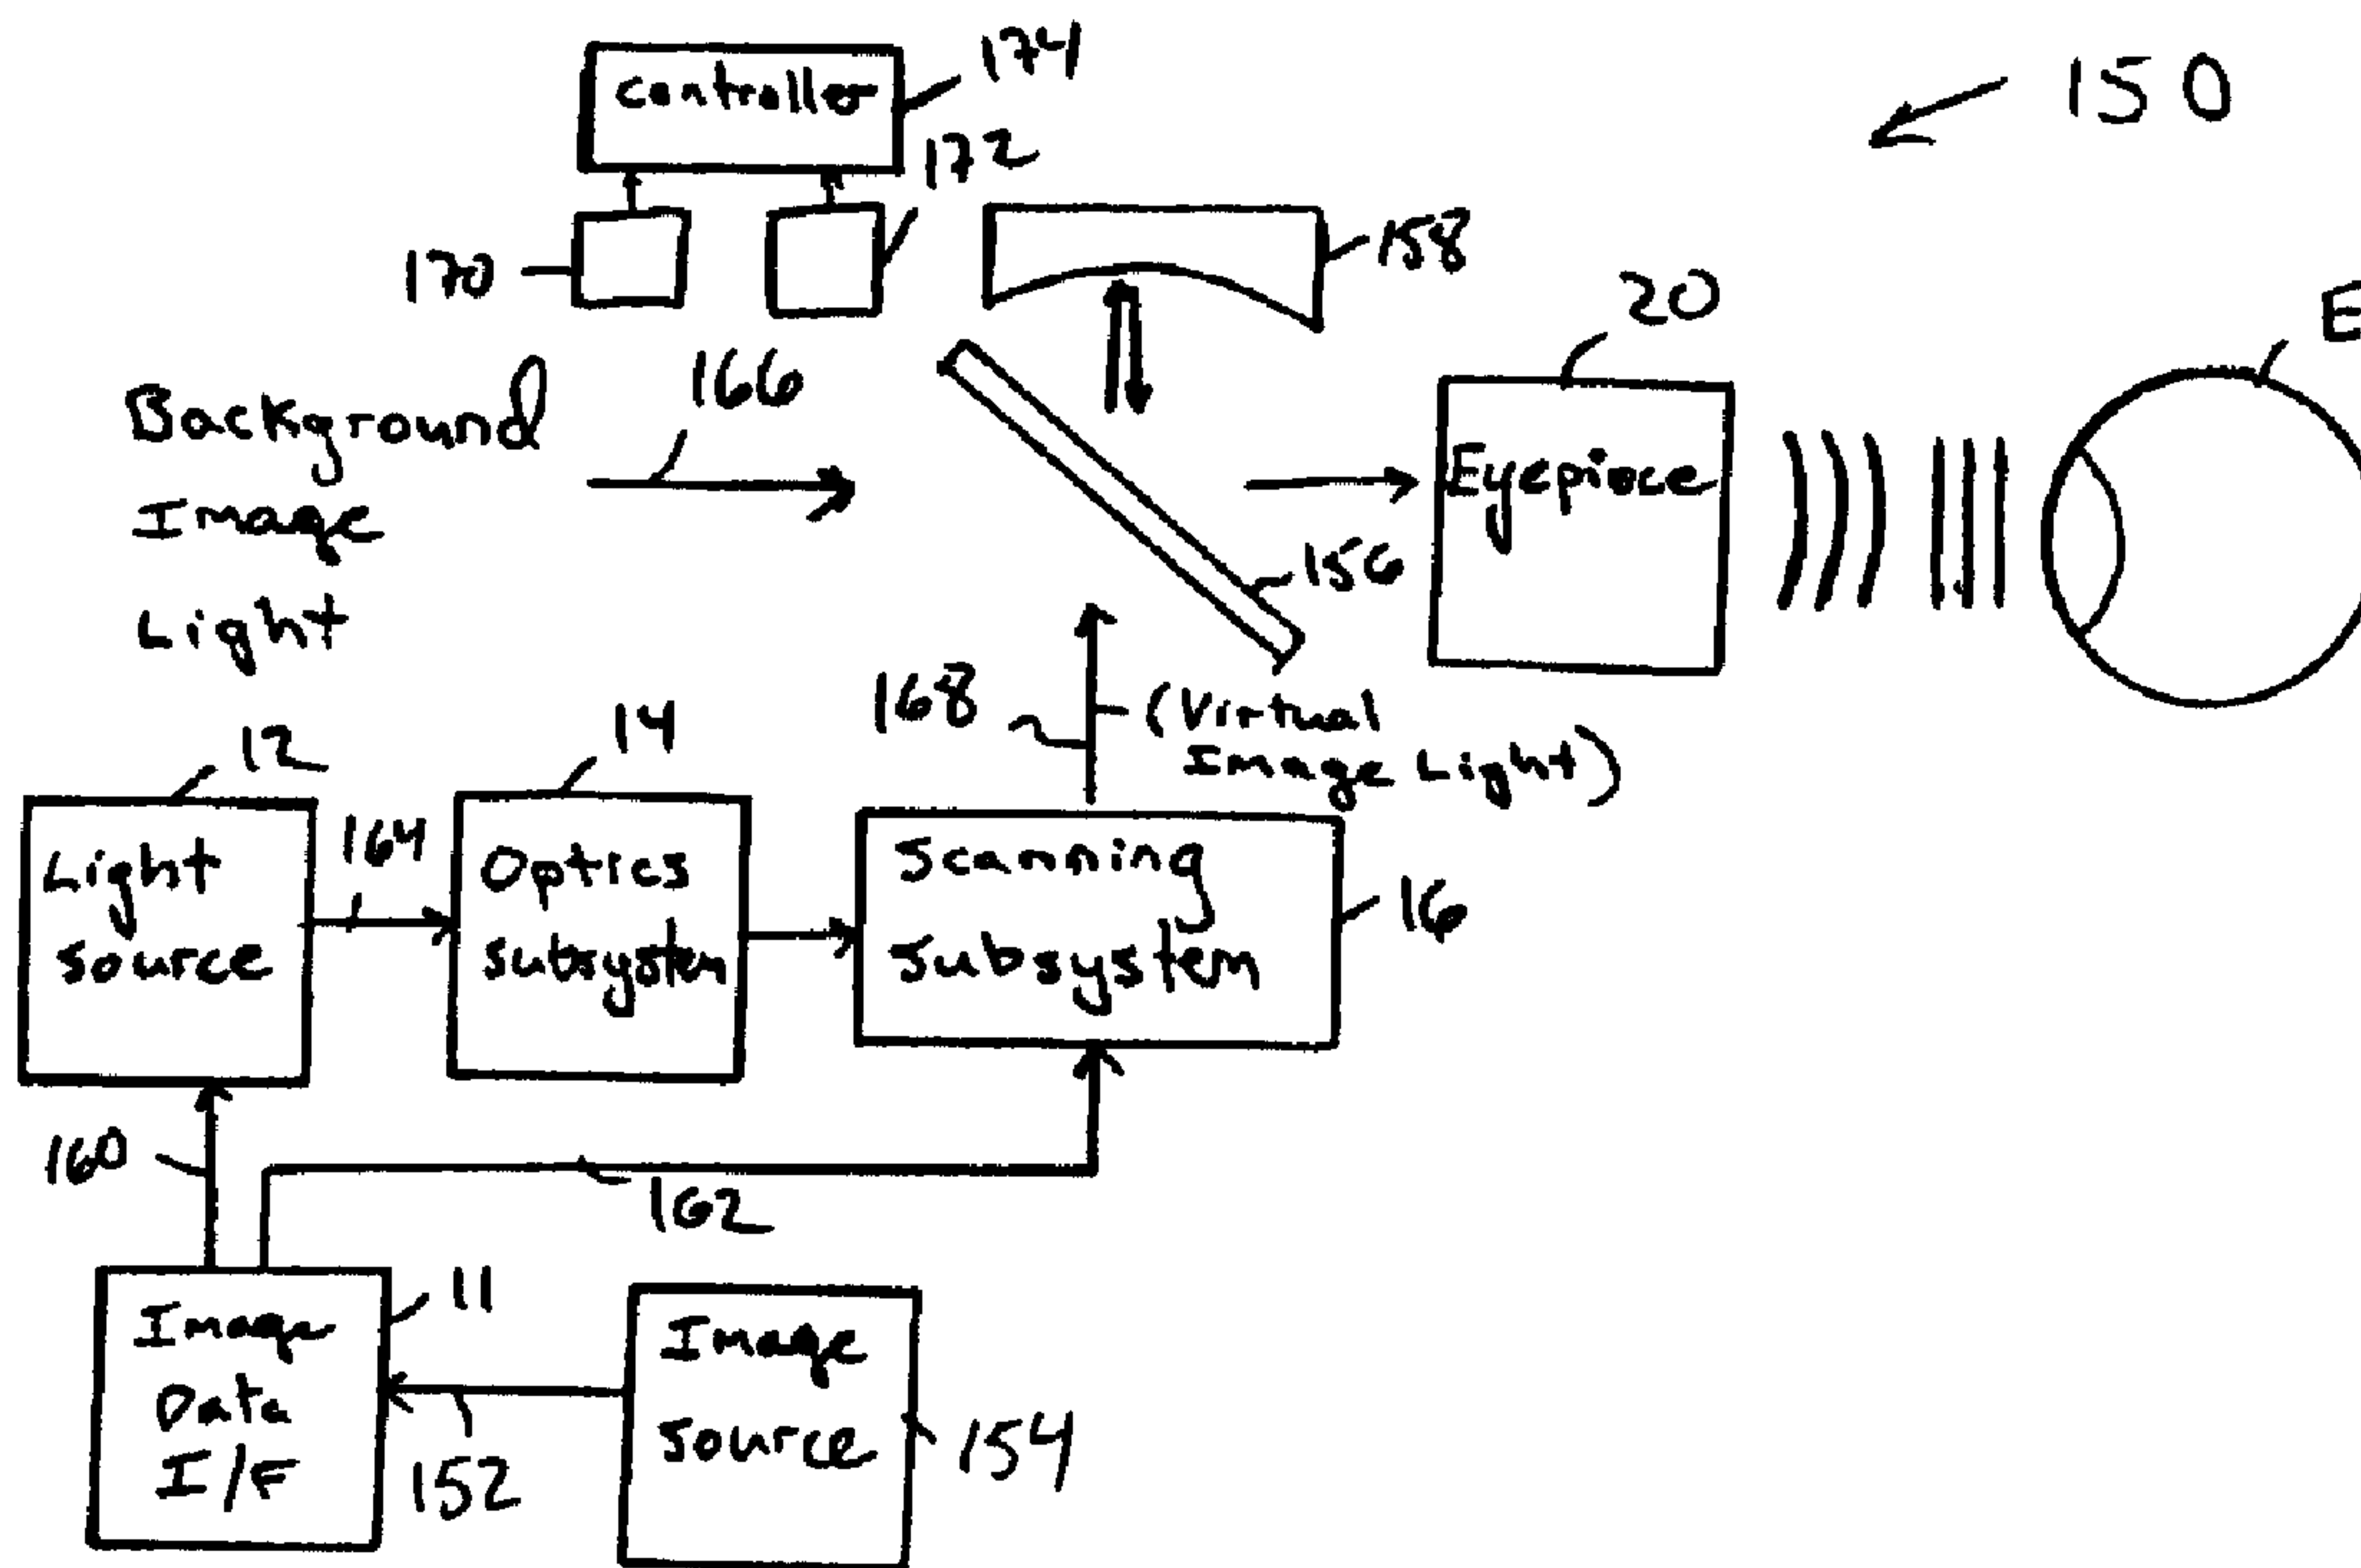 controller
174
150
172
170
158
20
E
Background
Image
Light
166
Eyepiece
156
168
(Virtual
Image Light)
12
14
Light
source
164
Optics
subsystem
Scanning
subsystem
16
160
162
Image
Data
I/F
11
152
Image
source
154